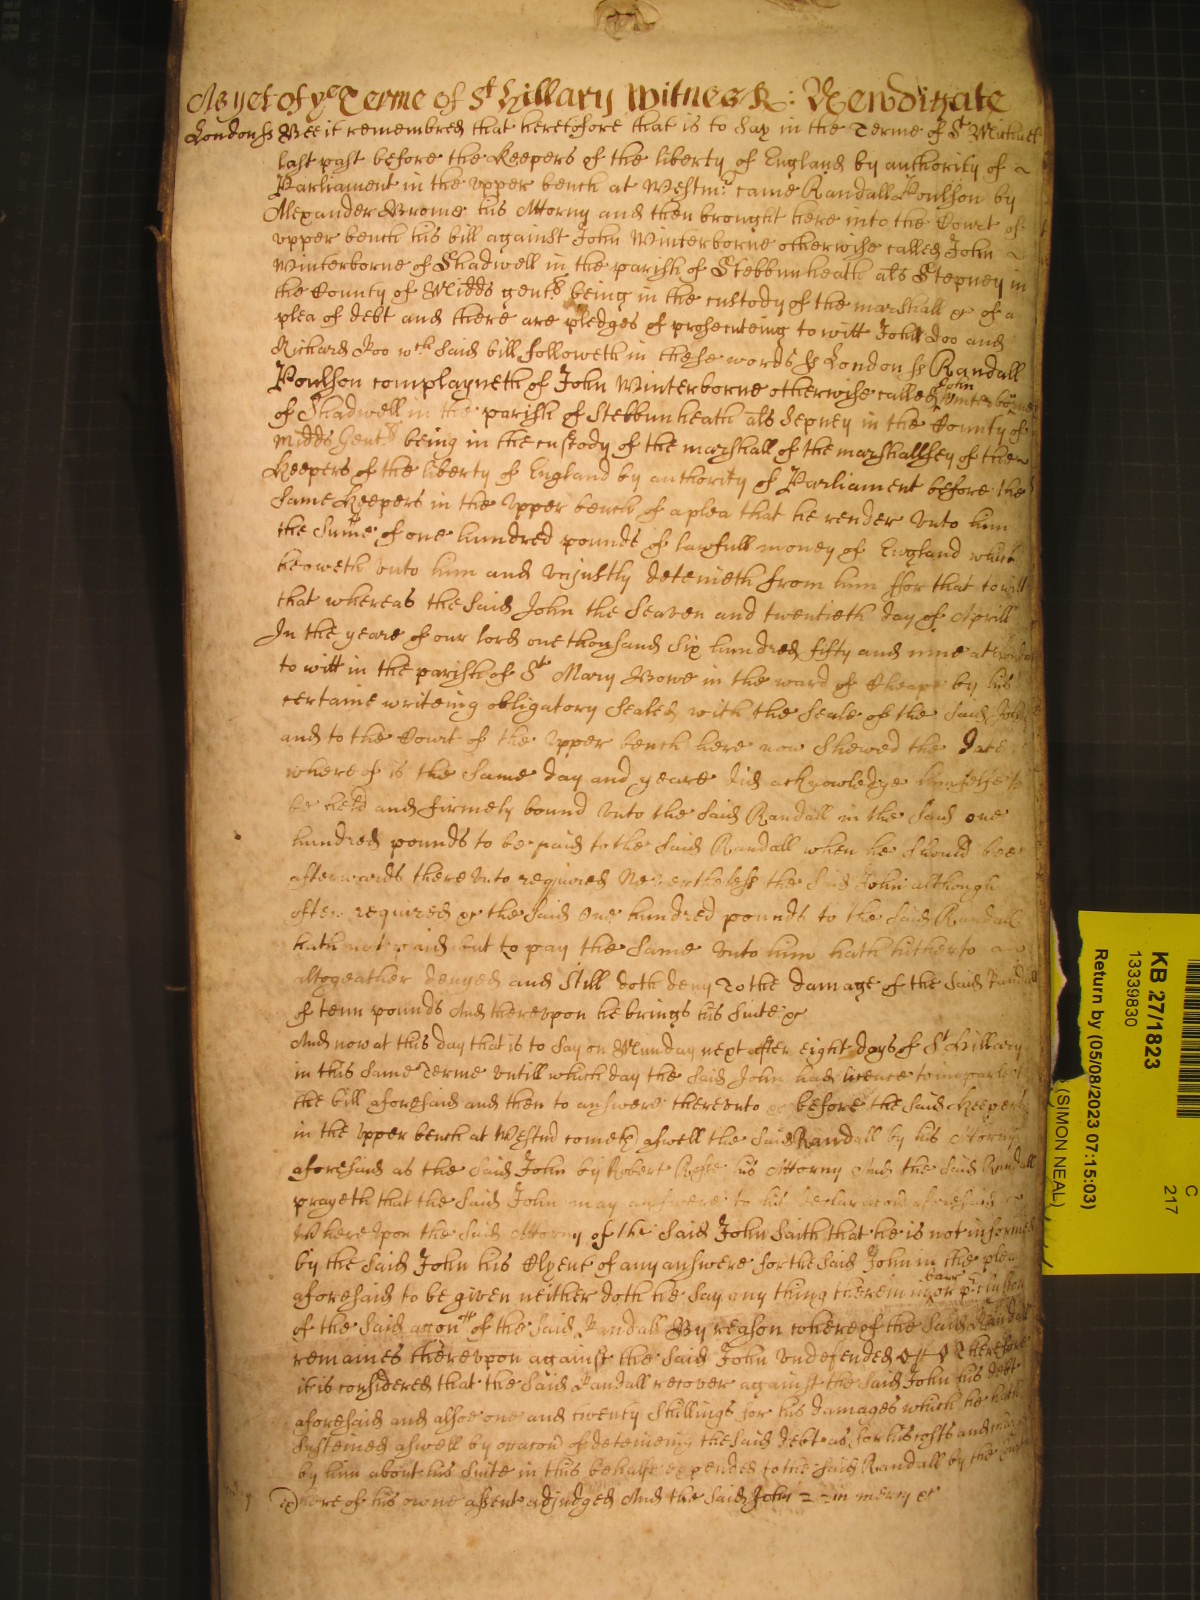 As yet of ye Terme of St Hillary Witnes R: Newdigate
London ss Bee it remembred that heretofore that is to say in the Terme of St Michael
last past before the Keepers of the liberty of England by authority of
Parliament in the upper bench at Westmr came Randall Poulson by
Alexander Brome his Attorny and then brought here into the Court of
upper bench his bill against John Winterborne otherwise called John
Winterborne of Shadwell in the parish of Stebbunheath als Stepney in
the County of Midds gent being in the custody of the marshall &c of a
plea of debt and there are pledges of prosecuteing to witt John Doo and
Richard Roo wch said bill followeth in these words ss London ss Randall
Poulson complayneth of John Winterborne otherwise called John Winterborne
of Shadwell in the parish of Stebbunheath als Stepney in the County of
Midds Gent being in the custody of the marshall of the marshallsey of the
Keepers of the liberty of England by authority of Parliament before the
same Keepers in the upper bench of a plea that he render unto him
the sume of one hundred pounds of lawfull money of England which
he oweth unto him and unjustly deteineth from him ffor that to witt
that whereas the said John the seaven and twentieth day of Aprill
In the yeare of our lord one thousand six hundred fifty and nine at London
to witt in the parish of St Mary Bowe in the ward of Cheape by his
certaine writeing obligatory sealed with the seale of the said John
and to the Court of the upper bench here now shewed the date
whereof is the same day and yeare did acknowledge himselfe to
be held and firmely bound unto the said Randall in the said one
hundred pounds to be paid to the said Randall when he should bee
afterwards thereunto required Neverthelesse the said John although
often required &c the said one hundred pounds to the said Randall
hath not paid but to pay the same unto him hath hitherto
altogeather denyed and still doth deny To the damage of the said Randall
of tenn pounds And thereupon he brings his suite &c
And now at this day that is to say on Munday next after eight days of St Hillary
in this same Terme untill which day the said John had licence to imparle to
the bill aforesaid and then to answere thereunto &c before the said Keepers
in the upper bench at Westmr cometh aswell the said Randall by his Attorny
aforesaid as the said John by Robert his Attorny And the said Randall
prayeth that the said John may answere to his declaracon aforesaid
Whereupon the said Attorny of the said John saith that he is not informed
by the said John his Clyent of any answere for the said John in the plea
aforesaid to be given neither doth he say any thing therein in barr or preclusion
of the said accon of the said Randall By reason whereof the said Randall
remaines thereupon against the said John undefended &c Therefore
it is considered that the said Randall recover against the said John his debt
aforesaid and alsoe one and twenty shillings for his damages which he hath
susteined aswell by occacon of deteineing the said debt as for his costs and
by him about his suite in this behalfe expended to the said Randall by the Court
here of his owne assent adjudged And the said John in mercy &c
KB 27/1823
13339830
Return by (05/08/2023 07:15:03)
(SIMON NEAL)
C
217